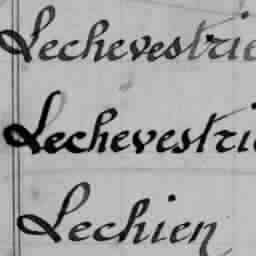 Lechevestrie
Lechevestri
Lechien